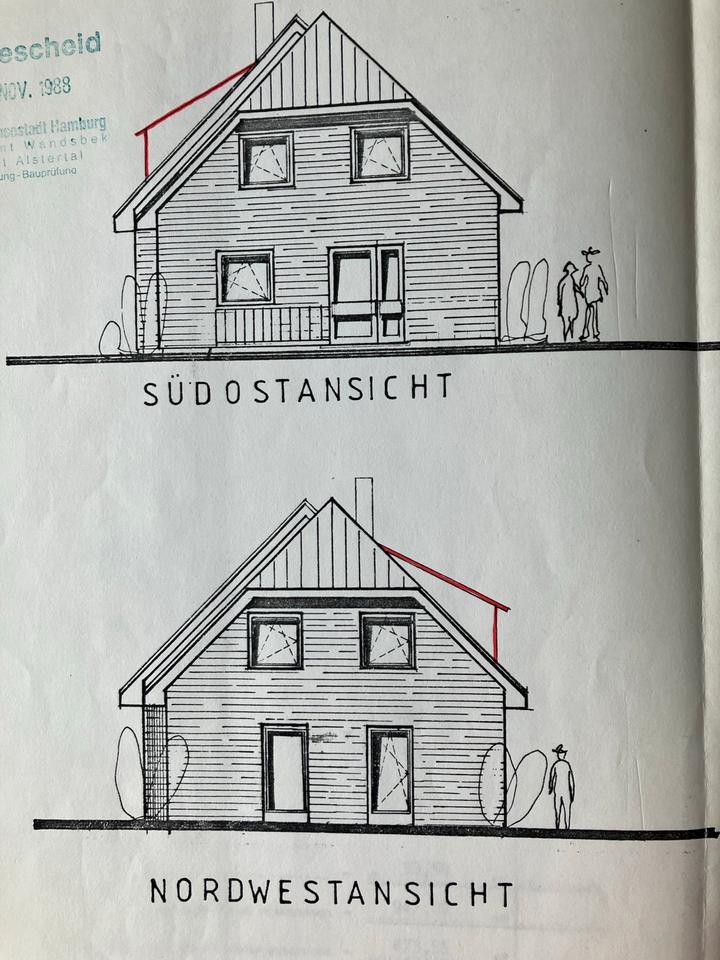 escheid
NOV. 1988
nsestadt Hamburg
nt Wandsbek
t Alstertal
ung-Bauprüfung
SÜDOSTANSICHT
NORDWESTANSICHT